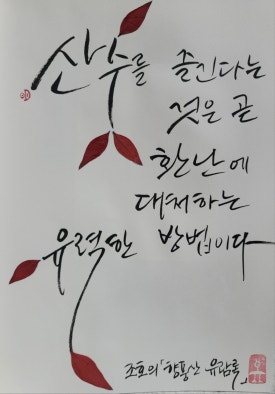 산수를 즐긴다는
것은 곧
환난에
대처하는
유력한 방법이다
조호의「향풍산 유람록」